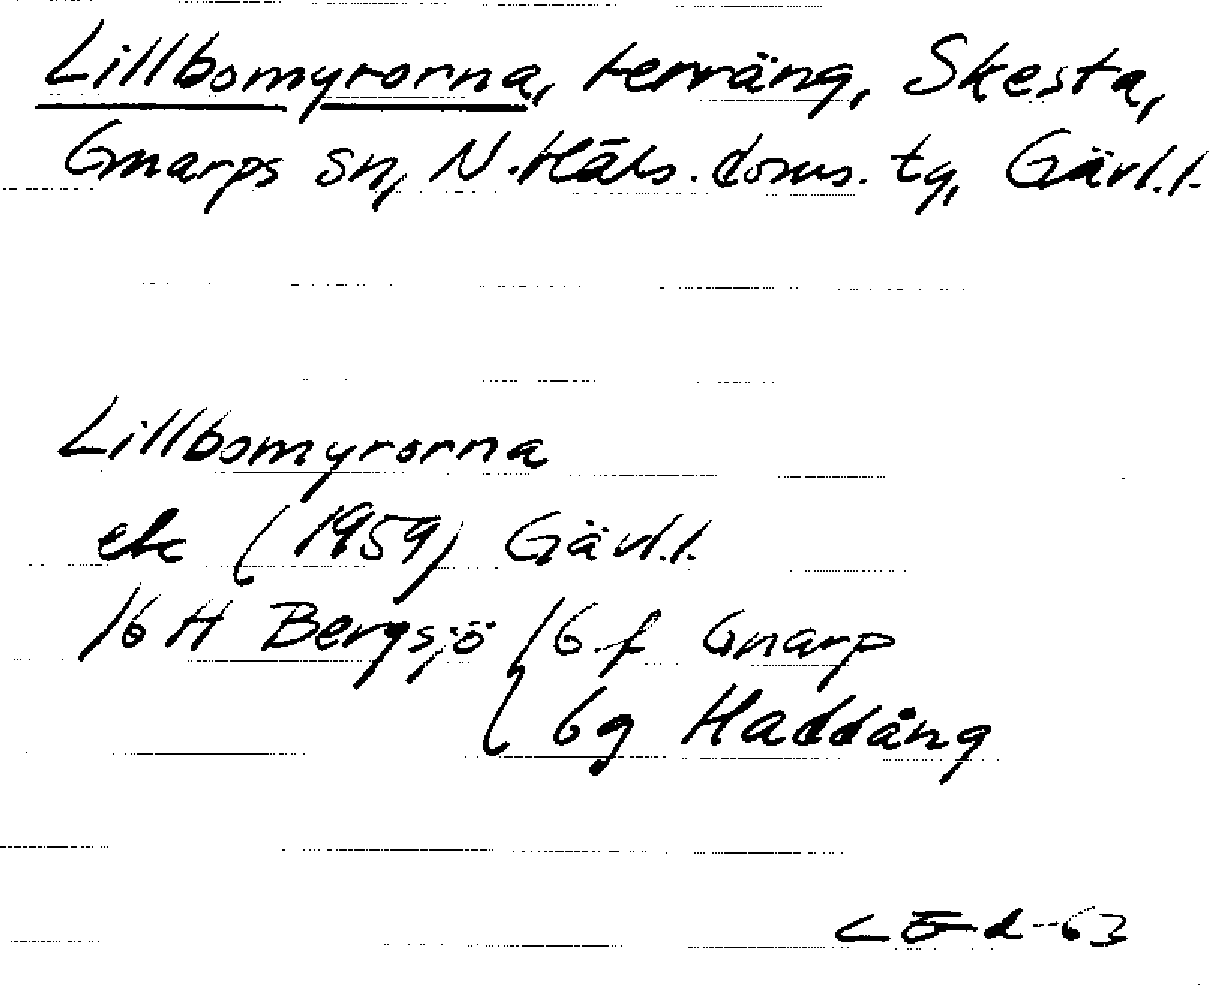 Lillbomyrorna, terräng, Skesta,
Gnarps sn, N. Häls. doms. tg, Gävl.l.
Lillbomyrorna
ek (1959) Gävl.l.
16 H Bergsjö 6 f Gnarp
6g Haddäng
-63